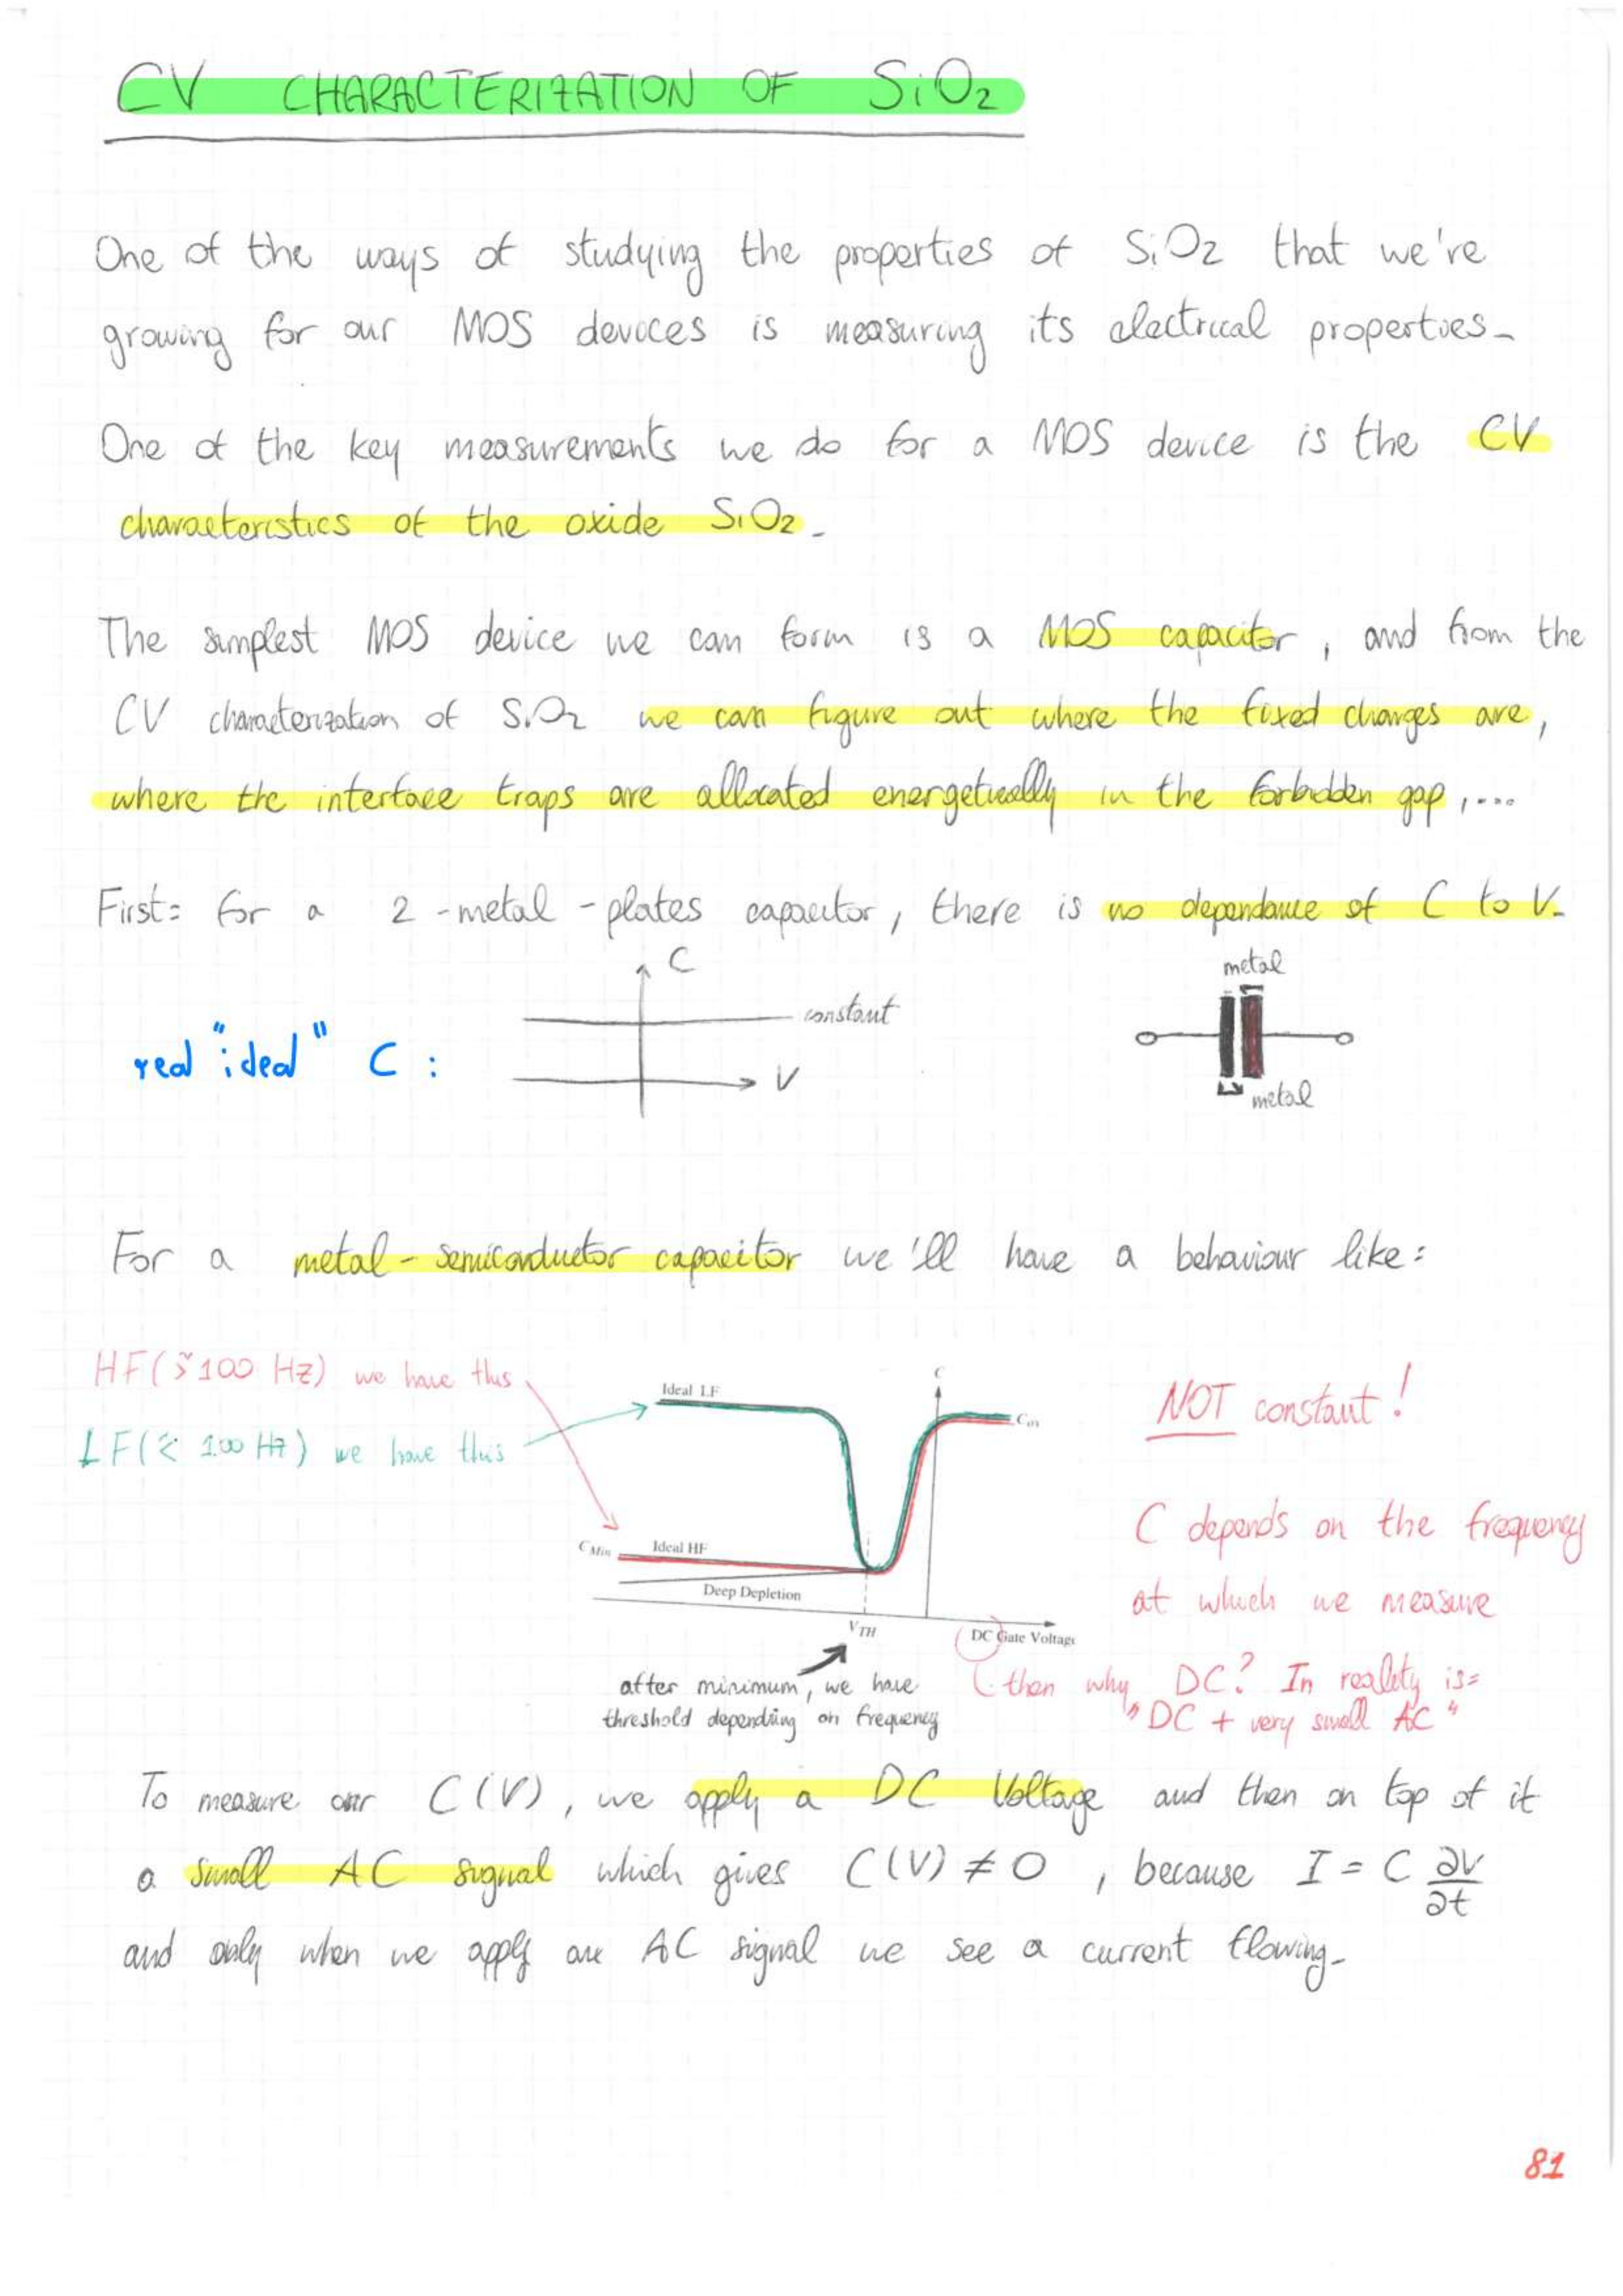 CV CHARACTERIZATION OF SiO2
One of the ways of studying the properties of SiO2 that we're
growing for our MOS devices is measuring its electrical properties-
One of the key measurements we do for a MOS device is the CV
characteristics of the oxide SiO2-
The simplest MOS device we can form is a MOS capacitor, and from the
CV characterization of SiO2 we can figure out where the fixed charges are,
where the interface traps are allocated energetically in the forbidden gap,....
First: for a 2-metal-plates capacitor, there is no dependance of C to V-
C
metal
constant
real "ideal" C :
V
metal
For a metal-semiconductor capacitor we'll have a behaviour like:
HF(≳100 Hz) we have this
LF(≲ 100 Hz) we have this
Ideal LF
C
Cox
NOT constant!
C depends on the frequency
at which we measure
CMin
Ideal HF
Deep Depletion
VTH
DC Gate Voltage
after minimum, we have
threshold depending on frequency
then why DC? In reality is=
"DC + very small AC"
To measure our C(V), we apply a DC Voltage and then on top of it
a small AC signal which gives C(V) ≠ 0 , because I = C ∂V/∂t
and only when we apply an AC signal we see a current flowing-
81